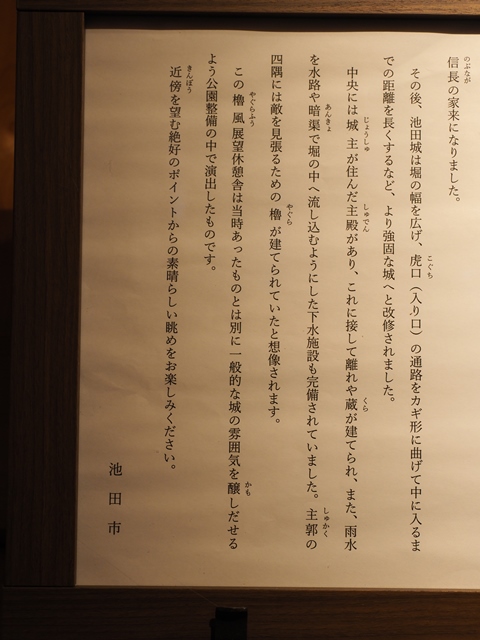 信長の家来になりました。
その後、池田城は堀の幅を広げ、虎口（入り口）の通路をカギ形に曲げて中に入るま
での距離を長くするなど、より強固な城へと改修されました。
中央には城主が住んだ主殿があり、これに接して離れや蔵が建てられ、また、雨水
を水路や暗渠で堀の中へ流し込むようにした下水施設も完備されていました。主郭の
四隅には敵を見張るための櫓が建てられていたと想像されます。
この櫓風展望休憩舎は当時あったものとは別に一般的な城の雰囲気を醸しだせる
よう公園整備の中で演出したものです。
近傍を望む絶好のポイントからの素晴らしい眺めをお楽しみください。
池田市